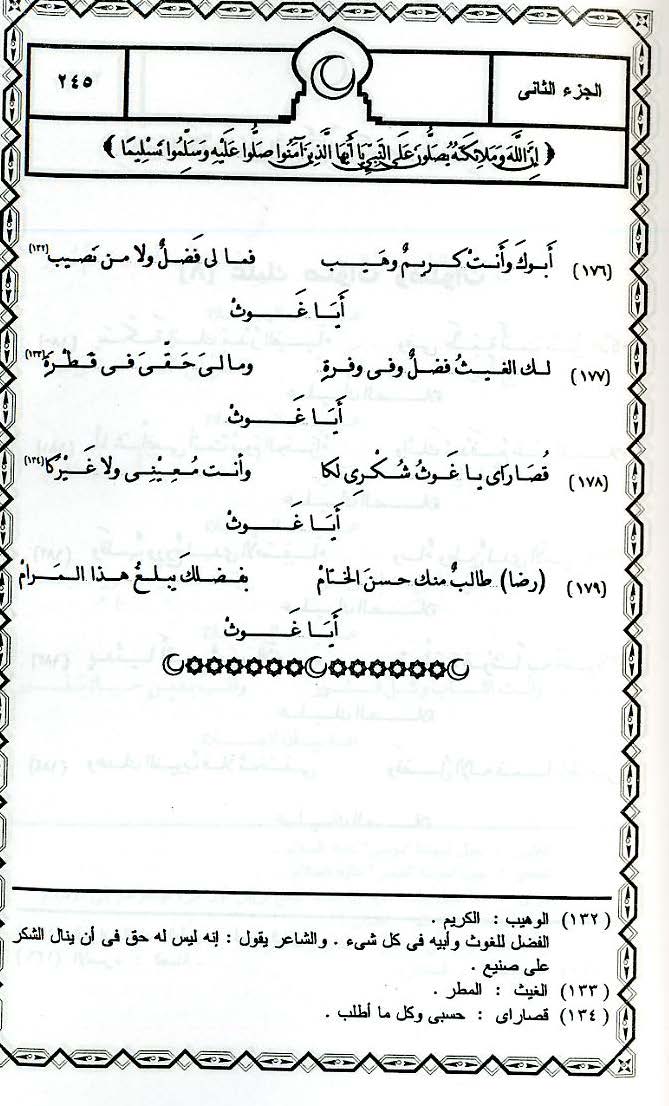 الجزء الثانى
٢٤٥
﴿ إِنَّ اللَّهَ وَمَلَائِكَتَهُ يُصَلُّونَ عَلَى النَّبِيِّ يَا أَيُّهَا الَّذِينَ آمَنُوا صَلُّوا عَلَيْهِ وَسَلِّمُوا تَسْلِيمًا ﴾
(١٧٦) أَبوكَ وَأَنتْ كريمٌ وهَيب فمـا لى فَضلٌ ولا من نَصيب(١٣٢)
أَيَـا غَـــوثْ
(١٧٧) لـك الغيـثُ فضلٌ وفى وفرةِ ومـا لىَ حَـقّىَ فـى قَـطْرَةِ(١٣٣)
أَيَـا غَـــوثْ
(١٧٨) قُصَاراى يـا غَـوثُ شُـكْـرِى لكا وأنـت مُـعِيْنِـى ولا غَـيْرَكَا(١٣٤)
أَيَـا غَـــوثْ
(١٧٩) (رضا) طالبٌ منك حسنَ الختامْ بفضلكَ يبلـغُ هـذا المـرامْ
أَيَـا غَـــوثْ
(١٣٢) الوهيب : الكريم .
الفضل للغوث وأبيه فى كل شىء . والشاعر يقول : إنه ليس له حق فى أن ينال الشكر
على صنيع .
(١٣٣) الغيث : المطر .
(١٣٤) قصاراى : حسبى وكل ما أطلب .